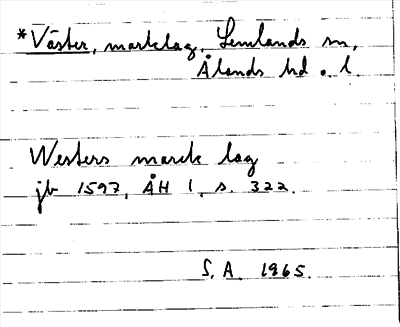 *Väster, marklag, Lemlands sn,
Ålands hd o. l.
Westers marck lag
jb 1597, ÅH 1, s. 322.
S. A. 1965.